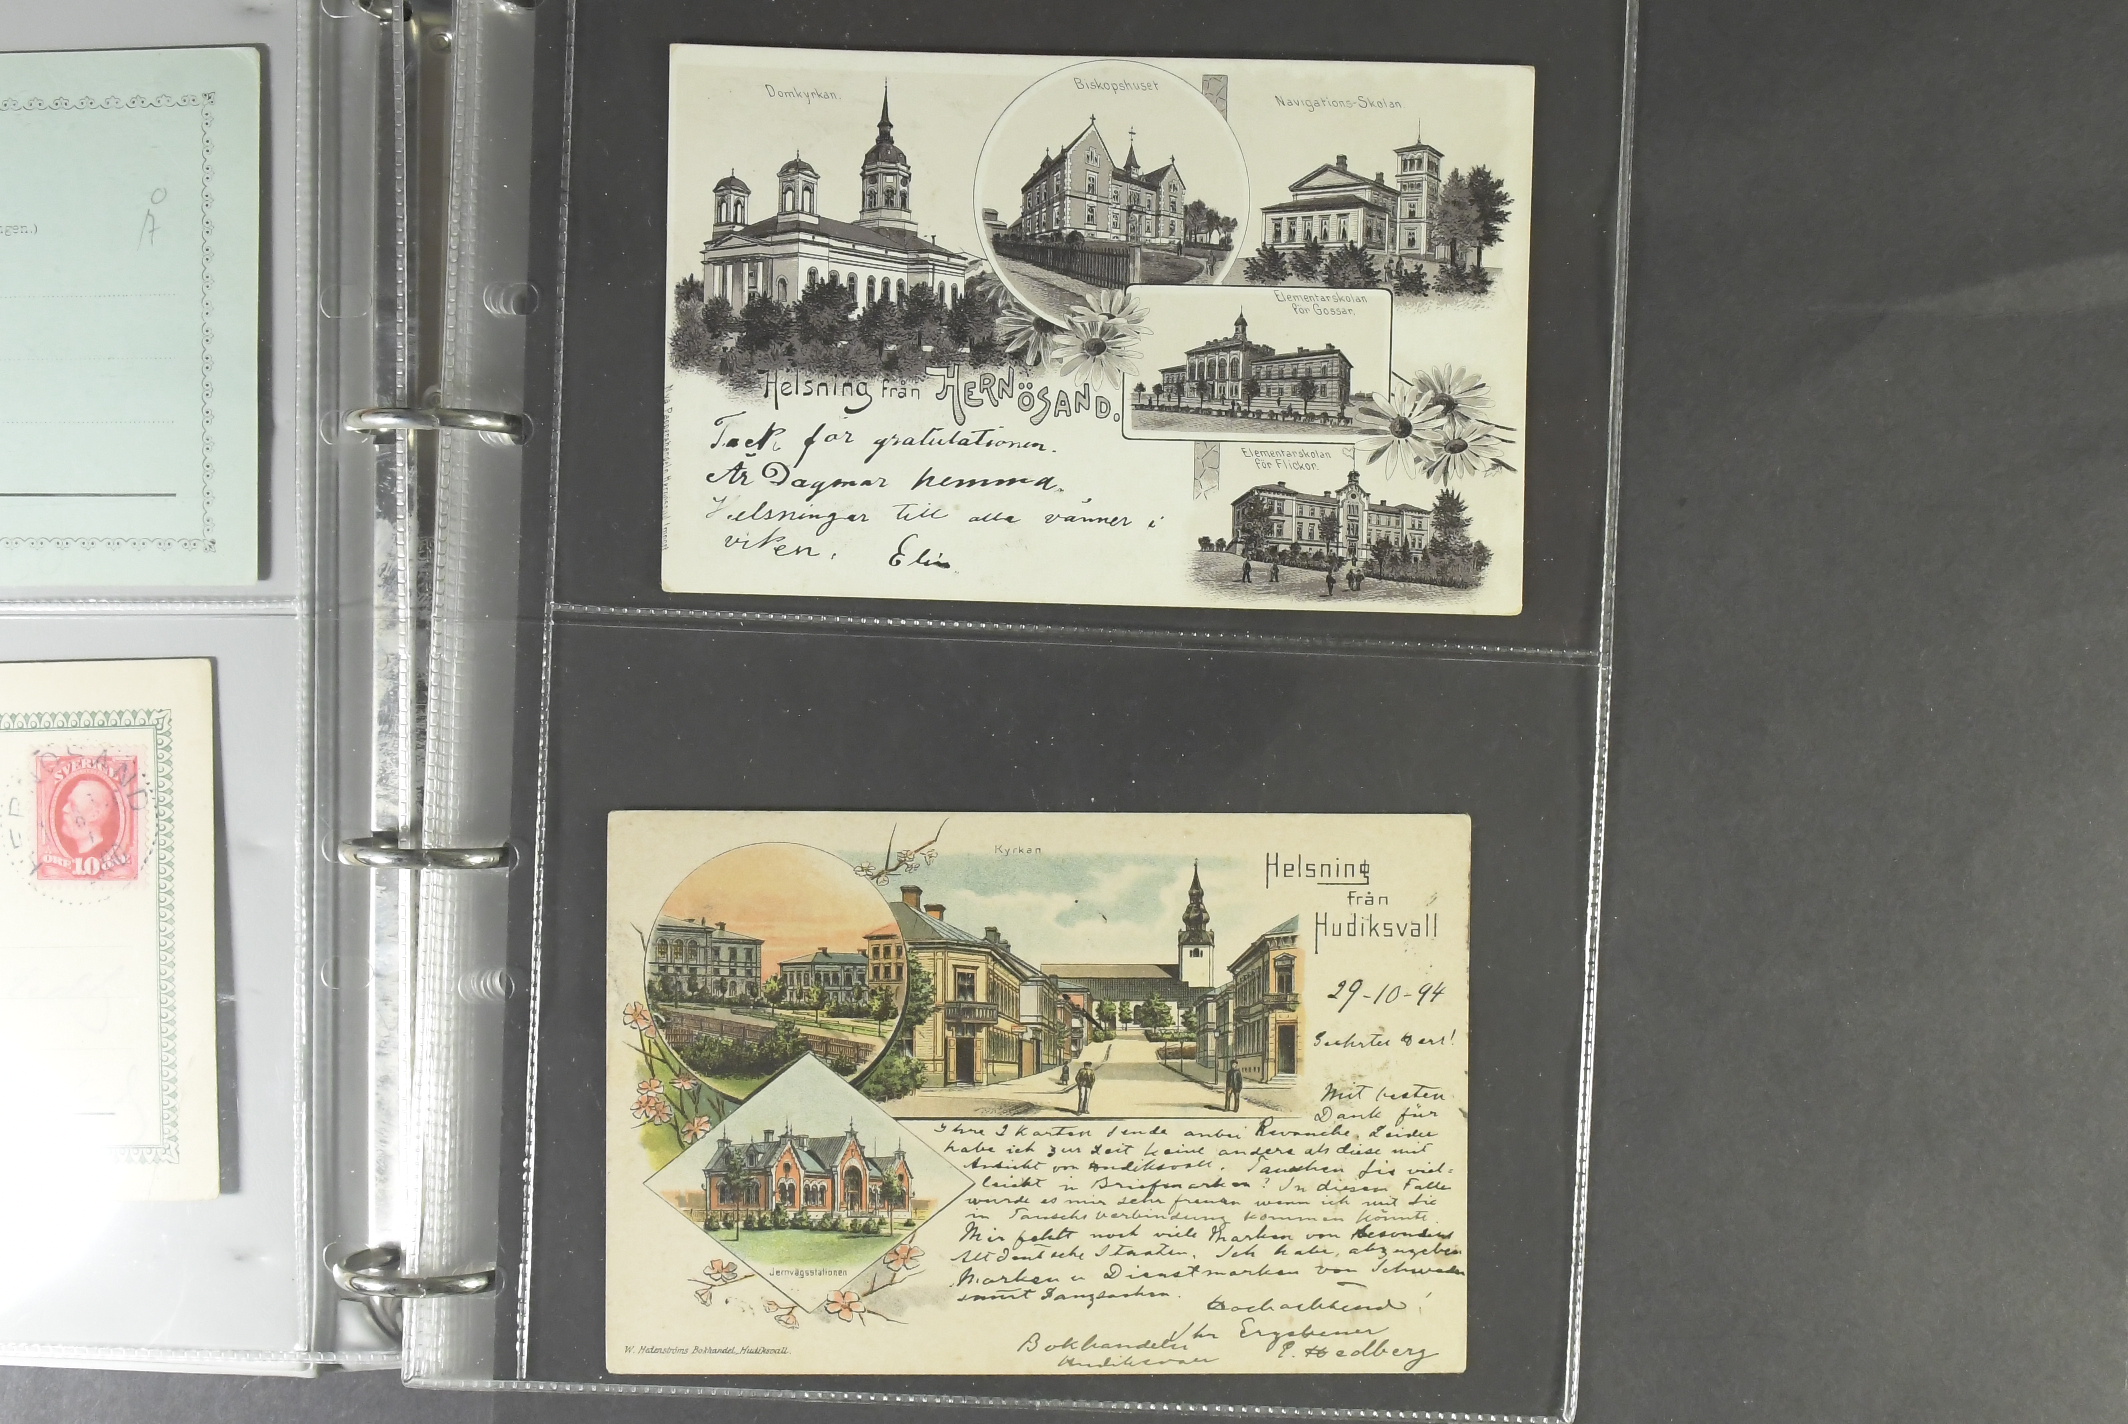 ngen.)
O
A
SVERIGE
ÖRE 10 ÖRE
Domkyrkan.
Biskopshuset
Navigations-Skolan
Elementarskolan
för Gossar.
Helsning från HERNÖSAND.
Elementarskolan
för Flickor.
Tack för gratulationen.
Är Dagmar hemma.
Helsningar till alla vänner i
viken. Elin
Kyrkan
Helsning
från
Hudiksvall
29-10-94
Geehrter Herr!
Mit besten
Dank für
Ihre 2 Karten sende anbei Revanche. Leider
habe ich zur Zeit keine anders als diese mit
Ansicht von Hudiksvall. Tauschen Sie viel-
leicht in Briefmarken? In diesem Falle
würde es mir sehr freuen wenn ich mit Sie
in Tauschverbindung kommen könnte.
Mir fehlt noch viele Marken von besonders
Altdeutsche Staaten. Ich habe abzugeben
Marken u Dienstmarken von Schweden
samt Ganzsachen.
Hochachtend!
Ihr Ergebener
Bokhandeln
Hudiksvall
E. Hedberg
Jernvägsstationen
W. Hedenströms Bokhandel, Hudiksvall.